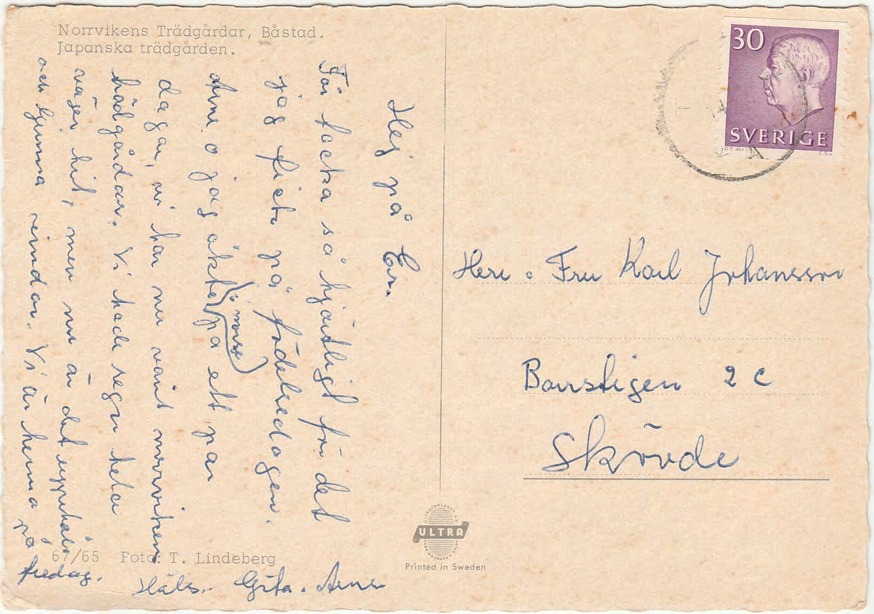 Norrvikens Trädgårdar, Båstad.
Japanska trädgården.
Hej på Er.
Får tacka så hjärtligt för det
jag fick på födelsedagen.
Arne o jag åkte (i morse) på ett par
dagar, vi har nu varit norrvikens
trädgårdar. Vi hade regn hela
vägen hit, men nu är det uppehåll
och kunna vindar. Vi är hemma på
fredag.
Häls. Gita. Arne
67/65 Foto: T. Lindeberg
ULTRA
Printed in Sweden
30
SVERIGE
14
Herr o Fru Karl Johansson
Barrstigen 2 C
Skövde